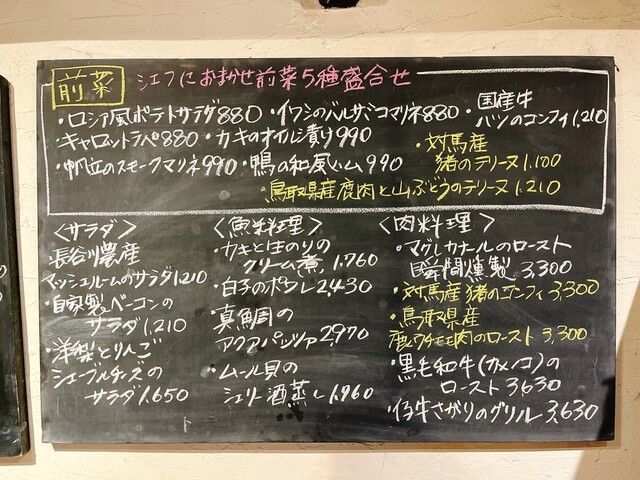 前菜 シェフにおまかせ前菜5種盛合せ
・ロシア風ポテトサラダ880 ・イワシのバルサミコマリネ880 ・国産牛
ハツのコンフィ1,210
キャロットラペ880 ・カキのオイル漬け990
・帆立のスモークマリネ990 ・鴨の和風ハム990
・対馬産
猪のテリーヌ1,100
・鳥取県産鹿肉と山ぶどうのテリーヌ1,210
<サラダ>
長谷川農産
マッシュルームのサラダ1,210
・自家製ベーコンの
サラダ1,210
・洋梨とりんご
シェーブルチーズの
サラダ1,650
<魚料理>
・カキと生のりの
クリーム煮1,760
・白子のポワレ2,430
・真鯛の
アクアパッツァ2970
・ムール貝の
シェリー酒蒸し1,960
<肉料理>
・マグレカナールのロースト
瞬間燻製3,300
・対馬産猪のコンフィ3,300
・鳥取県産
鹿ウチモモ肉のロースト3,300
・黒毛和牛(カメノコ)の
ロースト3,630
・仔牛さがりのグリル3,630